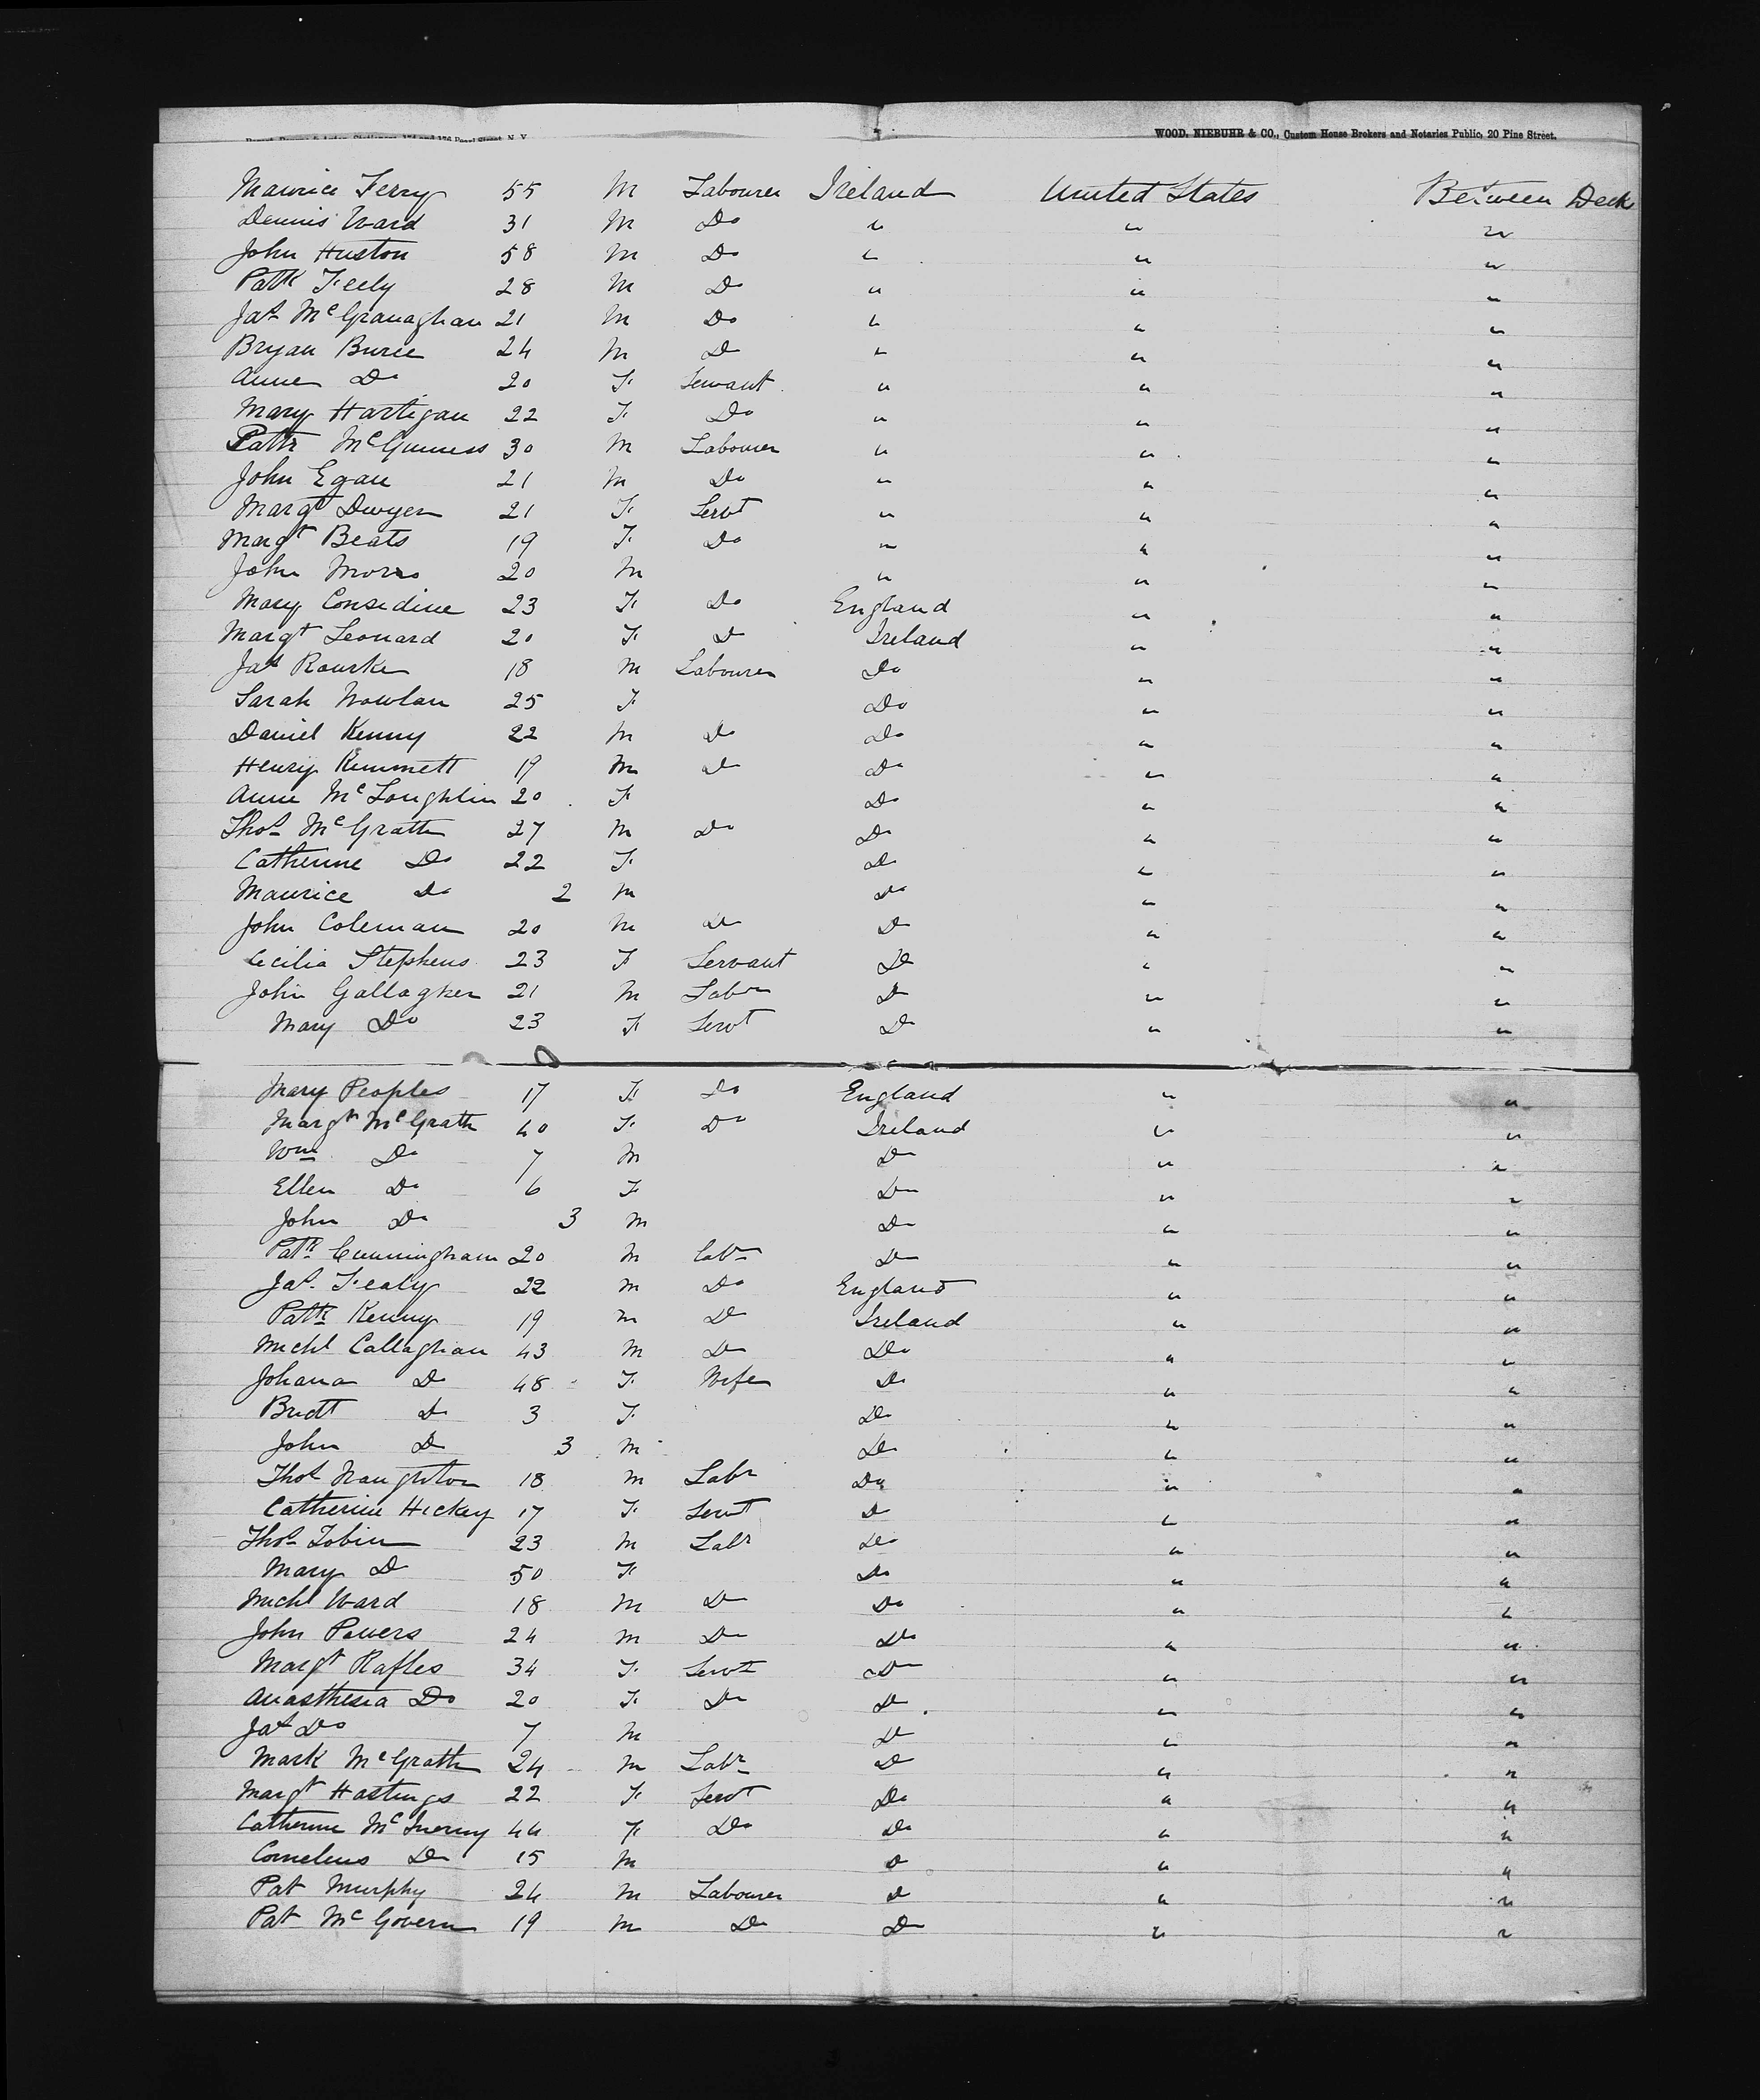 WOOD, NIEBUHR & CO., Custom House Brokers and Notaries Public, 20 Pine Street.
Maurice Ferry 55 M Labourer Ireland United States Between Deck
Dennis Ward 31 M Do " " "
John Huston 58 M Do " " "
Patk Feely 28 M Do " " "
Jas McGranaghan 21 M Do " " "
Bryan Buree 24 M Do " " "
Anne Do 20 F. Servant " " "
Mary Hartigan 22 F. Do " " "
Pattr McGuiness 30 M Labourer " " "
John Egan 21 M Do " " "
Margt Dwyer 21 F. Servt " " "
Margt Beats 19 F. Do " " "
John Morris 20 M " " "
Mary Considine 23 F. Do England " "
Margt Leonard 20 F. Do Ireland " "
Jas Rourke 18 M Labourer Do " "
Sarah Nowlan 25 F. Do " "
Daniel Kenny 22 M Do Do " "
Henry Kimmett 19 M Do Do " "
Anne McLoughlin 20 F Do " "
Thos McGrath 27 M Do Do " "
Catherine Do 22 F. Do " "
Maurice Do 2 M Do " "
John Coleman 20 M Do Do " "
Cicilia Stephens 23 F Servant Do " "
John Gallagher 21 M Labr Do " "
Mary Do 23 F. Servt Do " "
Mary Peoples 17 F. Do England " "
Margt McGrath 40 F. Do Ireland " "
Wm Do 7 M Do " "
Ellen Do 6 F. Do " "
John Do 3 M Do " "
Patk Cunningham 20 M Labr Do " "
Jas Fealy 22 M Do England " "
Patk Kenny 19 M Do Ireland " "
Michl Callaghan 43 M Do Do " "
Johana Do 48 F. Wife Do " "
Bridt Do 3 F. Do " "
John Do 3 M Do " "
Thos Naughton 18 M Labr Do " "
Catherine Hickey 17 F. Servt Do " "
Thos Tobin 23 M Labr Do " "
Mary Do 50 F. Do " "
Michl Ward 18 M Do Do " "
John Powers 24 M Do Do " "
Margt Rafles 34 F. Servt Do " "
Anasthesia Do 20 F. Do Do " "
Jas Do 7 M Do " "
Mark McGrath 24 M Labr Do " "
Margt Hastings 22 F. Servt Do " "
Catherine McInerny 44 F. Do Do " "
Cornelius Do 15 M Do " "
Pat Murphy 24 M Labourer Do " "
Pat McGovern 19 M Do Do " "